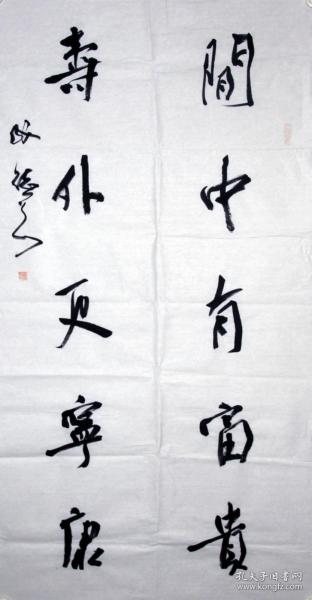 閒中有富貴
壽外更寧康
孔夫子旧书网
www.kongfz.com